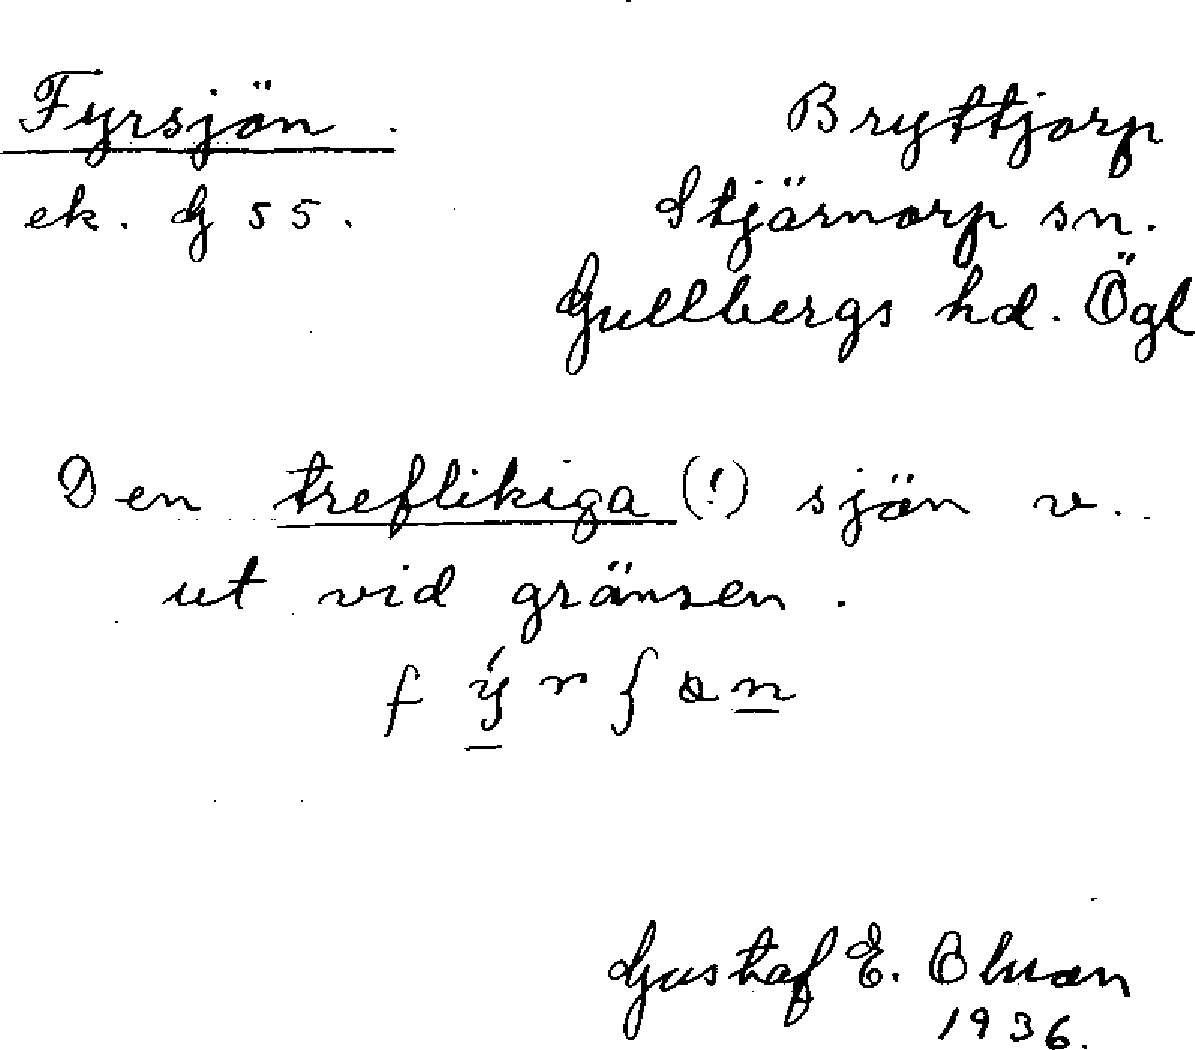 Fyrsjön.
ek. G 55.
Bryttjorp
Stjärnorp sn.
Gullbergs hd. Ögl
Den treflikiga (!) sjön v.
ut vid gränsen.
Gustaf E.
1936.